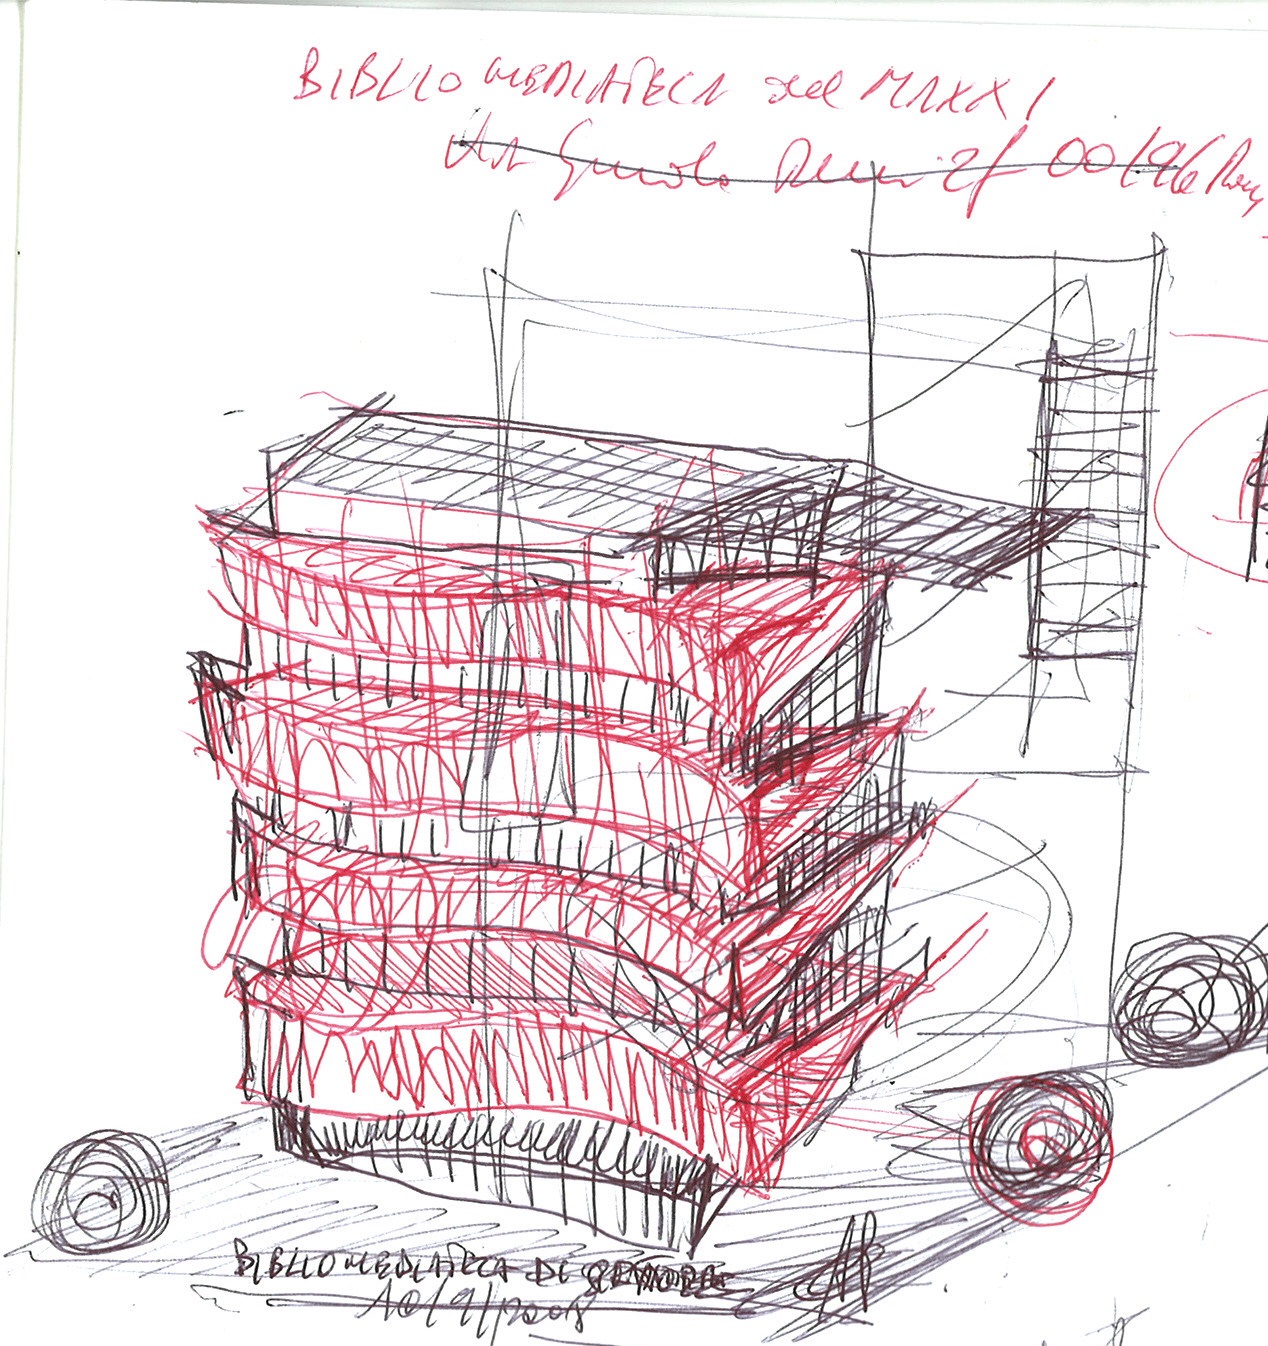 BIBLIOMEDIATECA del MAXXI
Via Guido Reni 2f 00196 Roma
BIBLIOMEDIATECA DI
10/9/2008